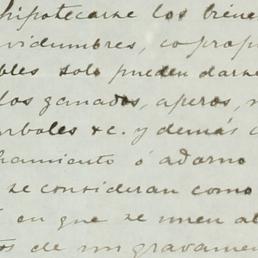 hipotecarse los biene
vidumbres, co-prop
bles solo pueden darse
los ganados, aperos, 
arboles &c. y demás
hamiento ó adorno
se consideran como
en que se unen al
os de un gravame